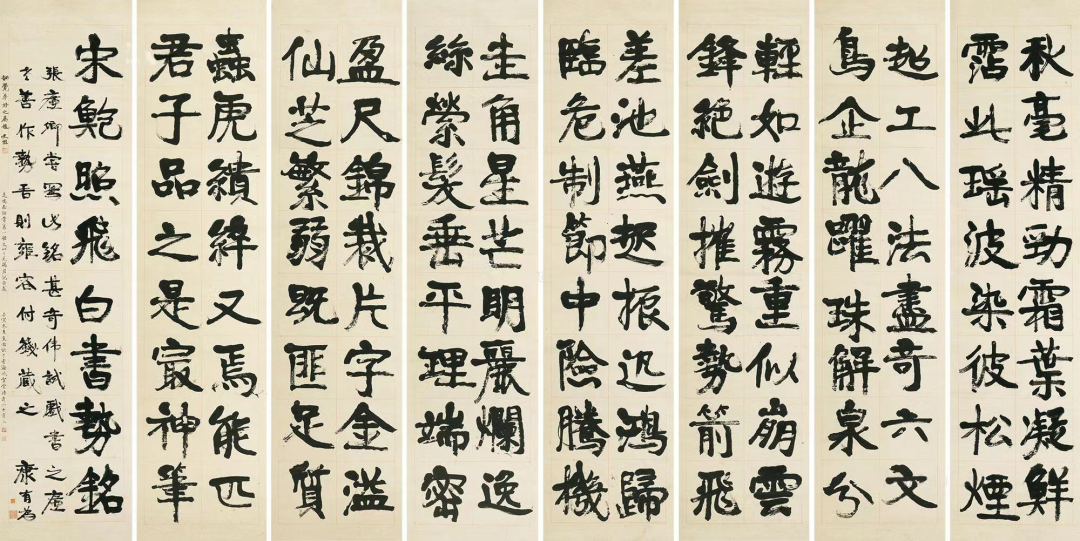 秋毫精勁霜葉凝鮮
霑此瑤波染彼松煙
超工八法盡奇六文
鳥企龍躍珠解泉分
輕如遊霧重似崩雲
鋒絕劍摧驚勢箭飛
差池燕起振迅鴻歸
臨危制節中險騰機
圭角星芒明麗爛逸
絲縈髮垂平理端密
盈尺錦裁片字金溢
仙芝繁弱既匪足質
蟲虎又焉能匹
君子品之是㝡神筆
宋鮑照飛白書勢銘
張廉卿嘗寫此銘甚奇偉試戲書之廉
善作勢吾則雍容付籛藏之 康有為